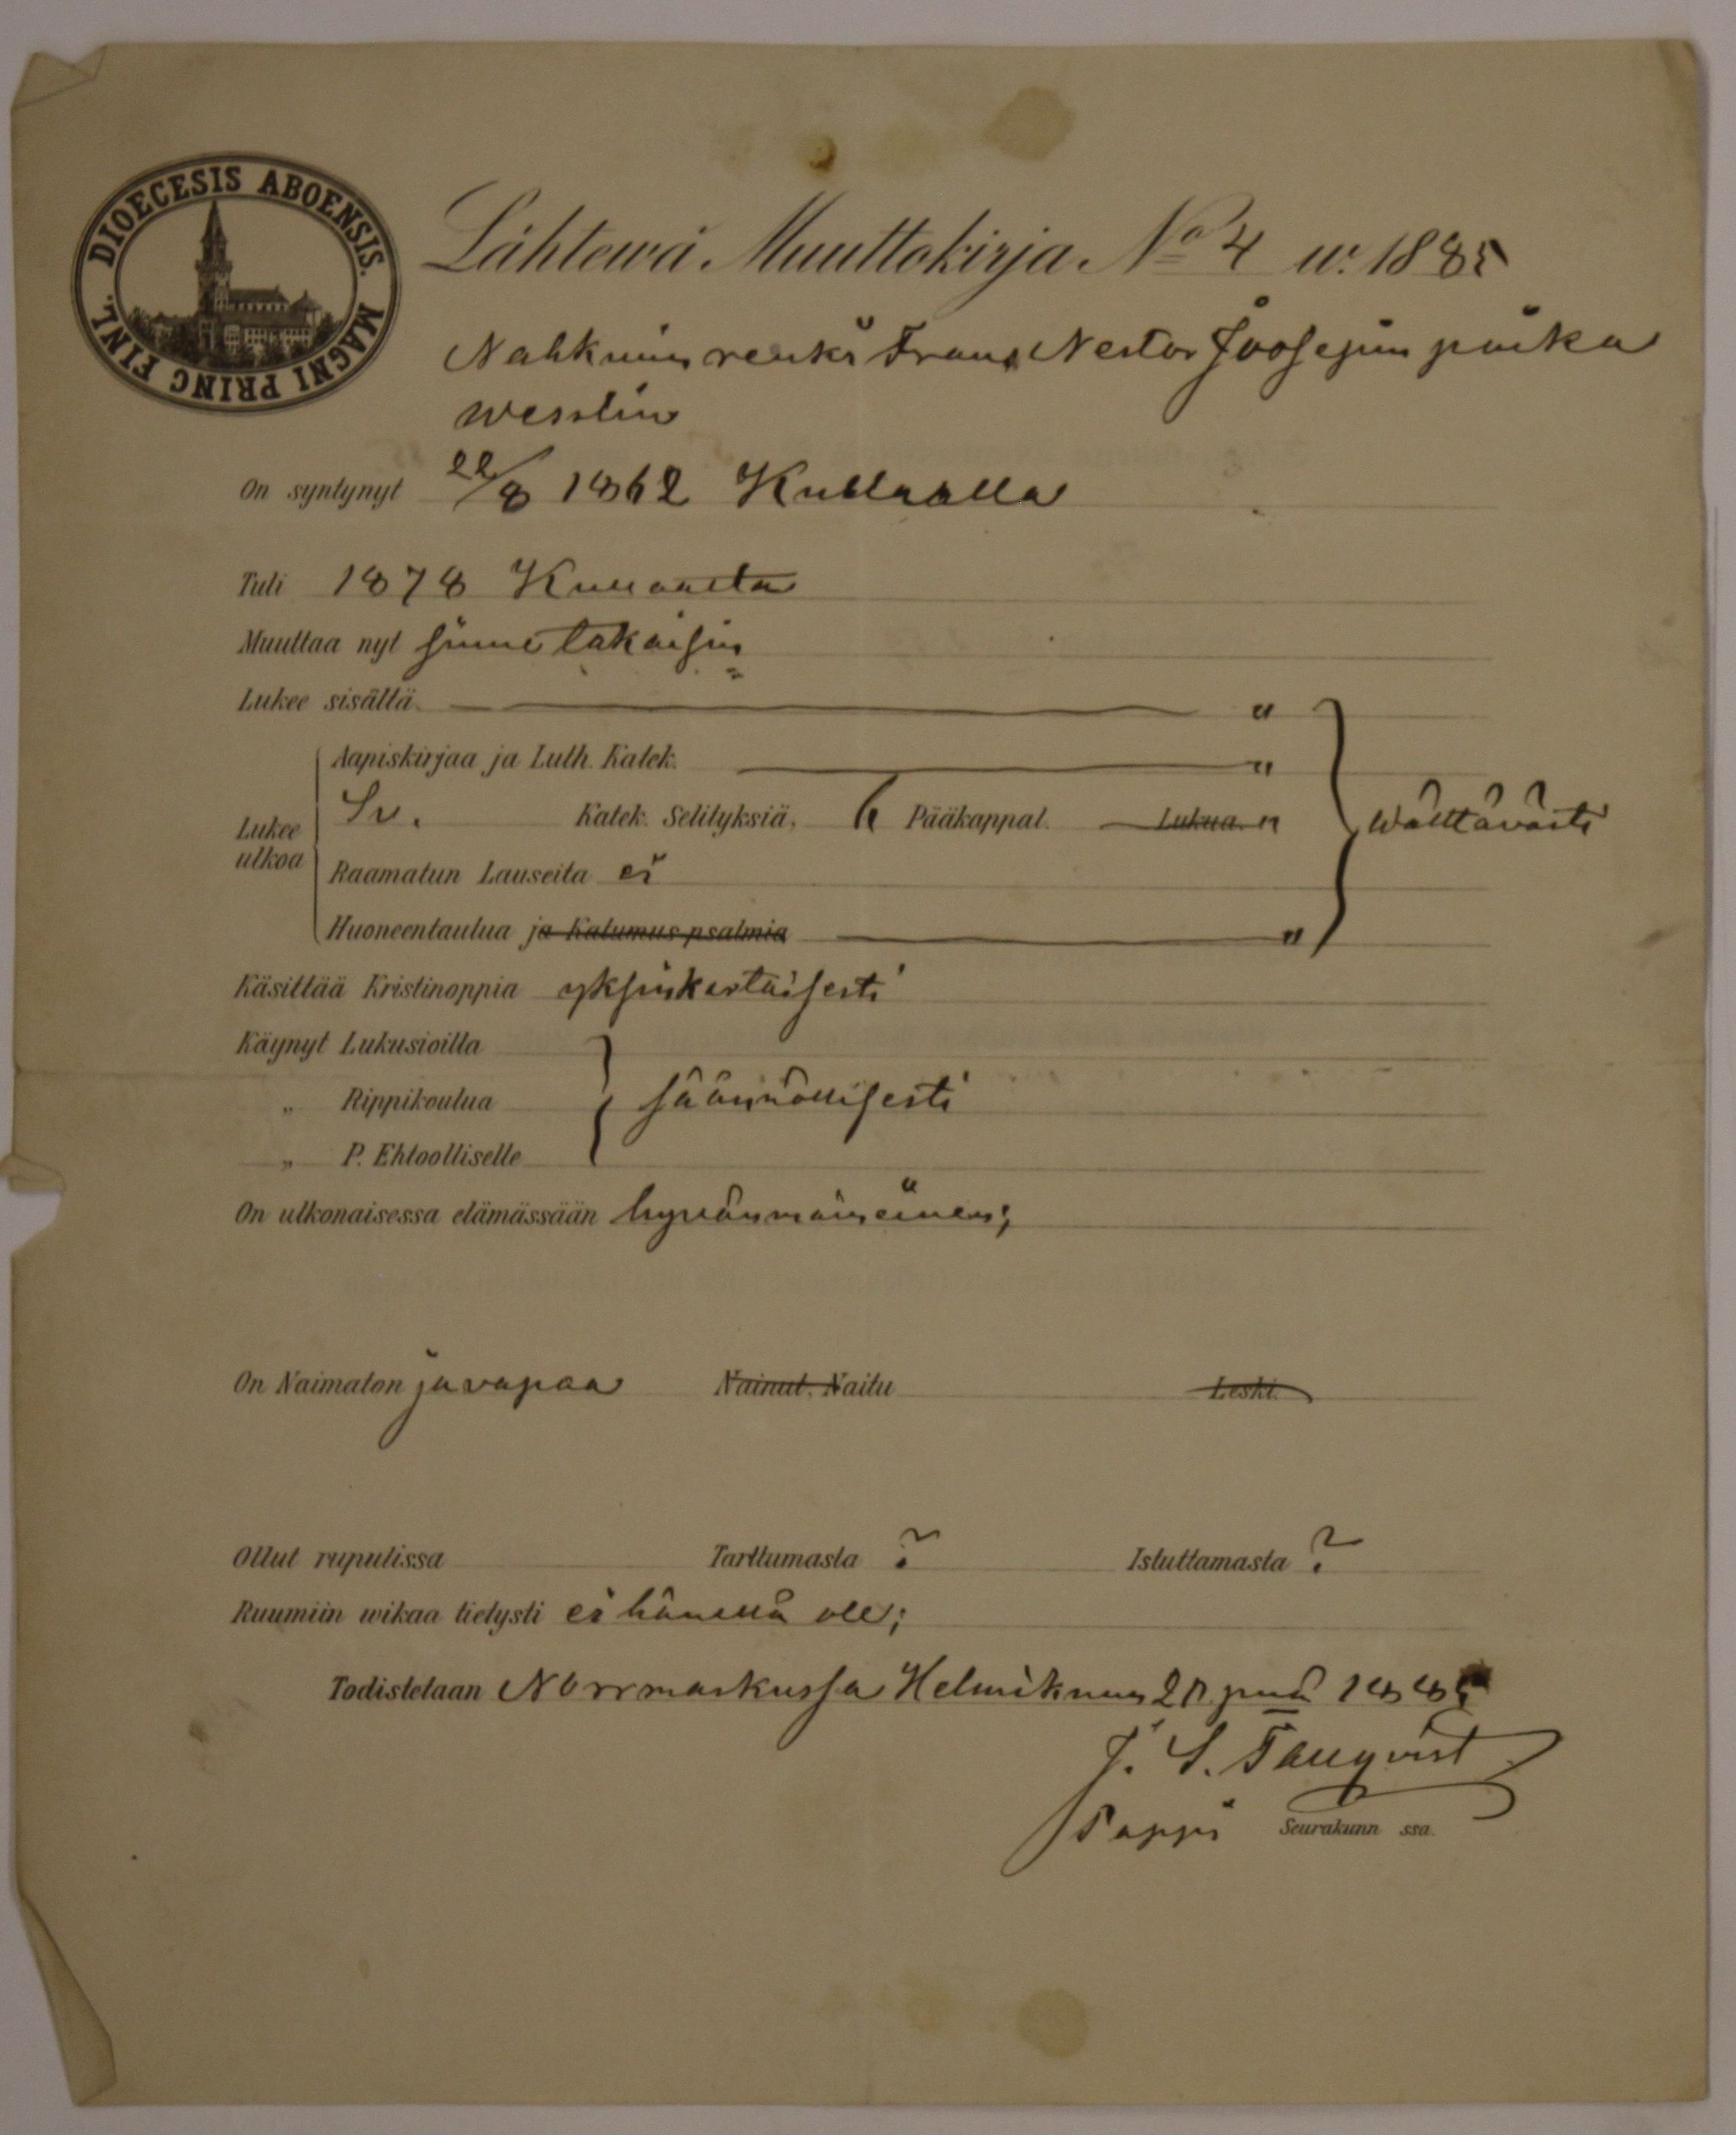 DIOECESIS ABOENSIS. MAGNI PRINC FINL.
Lähtewä Muuttokirja No 4 w. 1885
Nahkurin renki Frans Nestor Joosepin poika
Wesslin
On syntynyt 22/8 1862 Kullaalla
Tuli 1878 Kullaalta
Muuttaa nyt sinne takaisin
Lukee sisältä — "
Aapiskirjaa ja Luth. Katek. — "
Lukee ulkoa Sv. Katek. Selityksiä, 6 Pääkappal. Lukua. " Wälttävästi
Raamatun Lauseita ei
Huoneentaulua ja Katumus psalmia — "
Käsittää Kristinoppia yksinkertaisesti
Käynyt Lukusioilla
„ Rippikoulua säännöllisesti
„ P. Ehtoolliselle
On ulkonaisessa elämässään hyvänmaineinen;
On Naimaton ja vapaa Nainut. Naitu Leski.
Ollut rupulissa Tarttumasta ? Istuttamasta ?
Ruumiin wikaa tietysti ei hänellä ole;
Todistetaan Norrmarkussa Helmikuun p:nä 1885
J. S.
Pappi Seurakunn ssa.